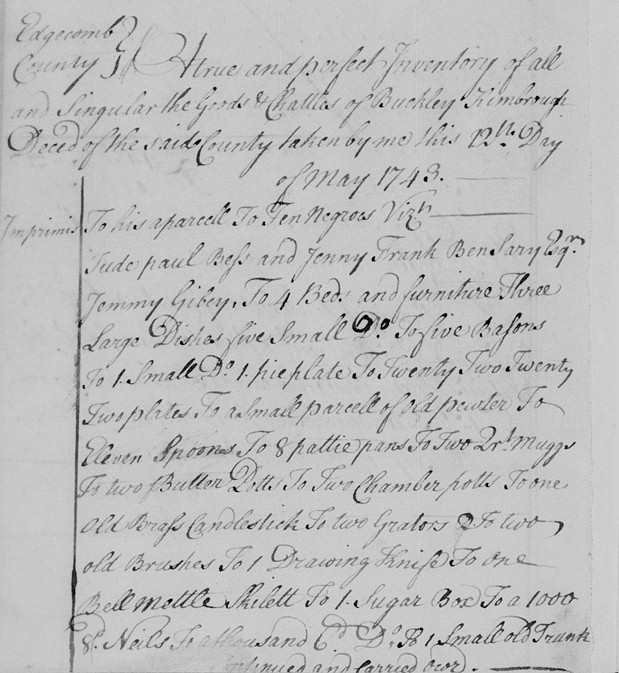 Edgecomb
County } A true and perfect Inventory of all
and Singular the Goods & Chattles of Buckley Kimbrough
Deced of the said County taken by me this 12th Day
of May 1743.
Imprimis To his aparcell To Ten Negroes Vizt
Jude paul Bess and Jenny Frank Ben Sary Esqr
Jemmy Gibey, To 4 Beds and furniture Three
Large Dishes five Small Do To five Basons
To 1 Small Do 1 pie plate To Twenty Two Twenty
Two plates To a Small parcell of old pewter To
Eleven Spoons To 8 pattie pans To Two Qrt Muggs
To two Butter Potts To Two Chamber potts To one
old Brass Candlestick To two Grators 2 To two
old Brushes To 1 Drawing Knife To one
Bell Mettle Skilett To 1 Sugar Box To a 1000
8d Neils To a thousand 6d Do To 1 Small old Trunk
and carried over